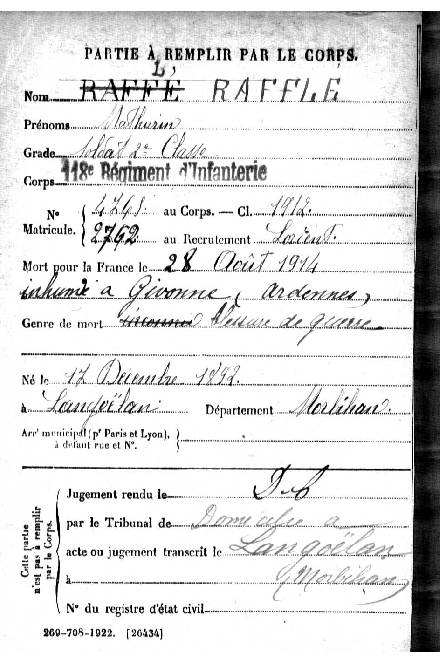 PARTIE À REMPLIR PAR LE CORPS.
L'
Nom RAFFE RAFFLE
Prénoms Mathurin
Grade Soldat 2e Classe
Corps 118e Régiment d'Infanterie
N° 4768 au Corps. — Cl. 1912.
Matricule. 2762 au Recrutement Lorient.
Mort pour la France le 28 Août 1914
inhumé à Givonne (Ardennes)
Genre de mort inconnu Blessure de guerre
Né le 17 Décembre 1892.
à Langoëlan Département Morbihan.
Arrt municipal (pr Paris et Lyon), à défaut rue et N°.
Cette partie n'est pas à remplir par le Corps.
Jugement rendu le
par le Tribunal de Domicilié à
acte ou jugement transcrit le Langoëlan
à (Morbihan)
N° du registre d'état civil
269-708-1922. [26434]